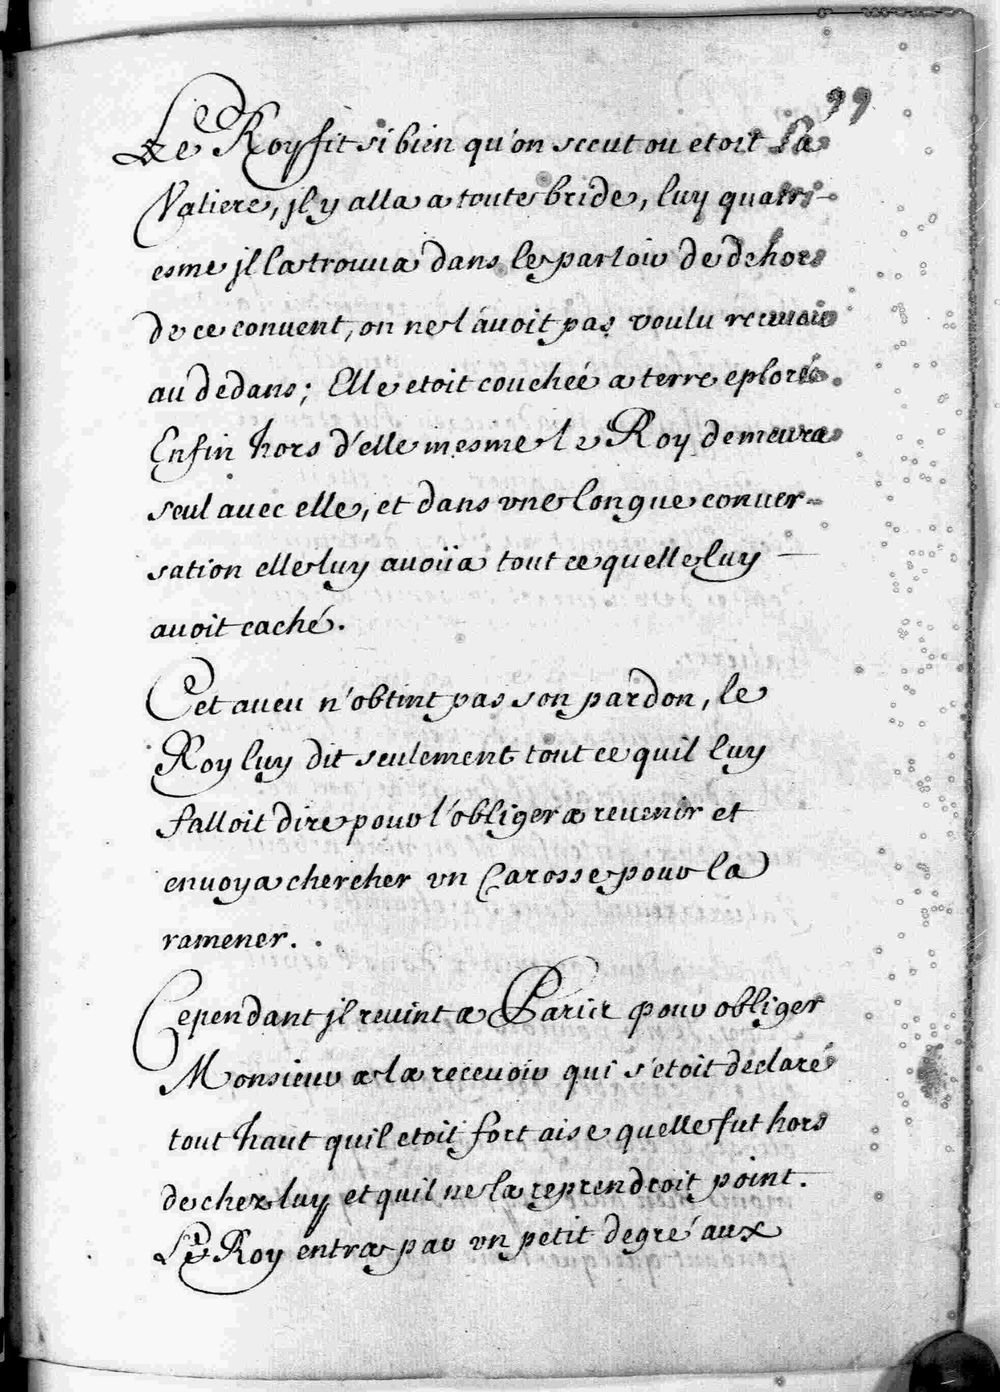 99
Le Roy fit si bien qu'on sceut ou etoit La
Valiere, jl y alla a toute bride, luy quatri-
esme jl la trouua dans le parloir de dehors
de ce conuent, on ne l'auoit pas voulu receuoir
au dedans; Elle etoit couchée a terre eplorée.
Enfin hors d'elle mesme le Roy demeura
seul auec elle, et dans vne longue conuer-
sation elle luy auoüa tout ce quelle luy
auoit caché.
Cet aueu n'obtint pas son pardon, le
Roy luy dit seulement tout ce quil luy
falloit dire pour l'obliger a reuenir et
enuoya chercher vn Carosse pour la
ramener.
Cependant jl reuint a Paris pour obliger
Monsieur a la receuoir qui s'etoit declaré
tout haut quil etoit fort aise quelle fut hors
de chez luy et quil ne la reprendroit point.
Le Roy entra par vn petit degré aux